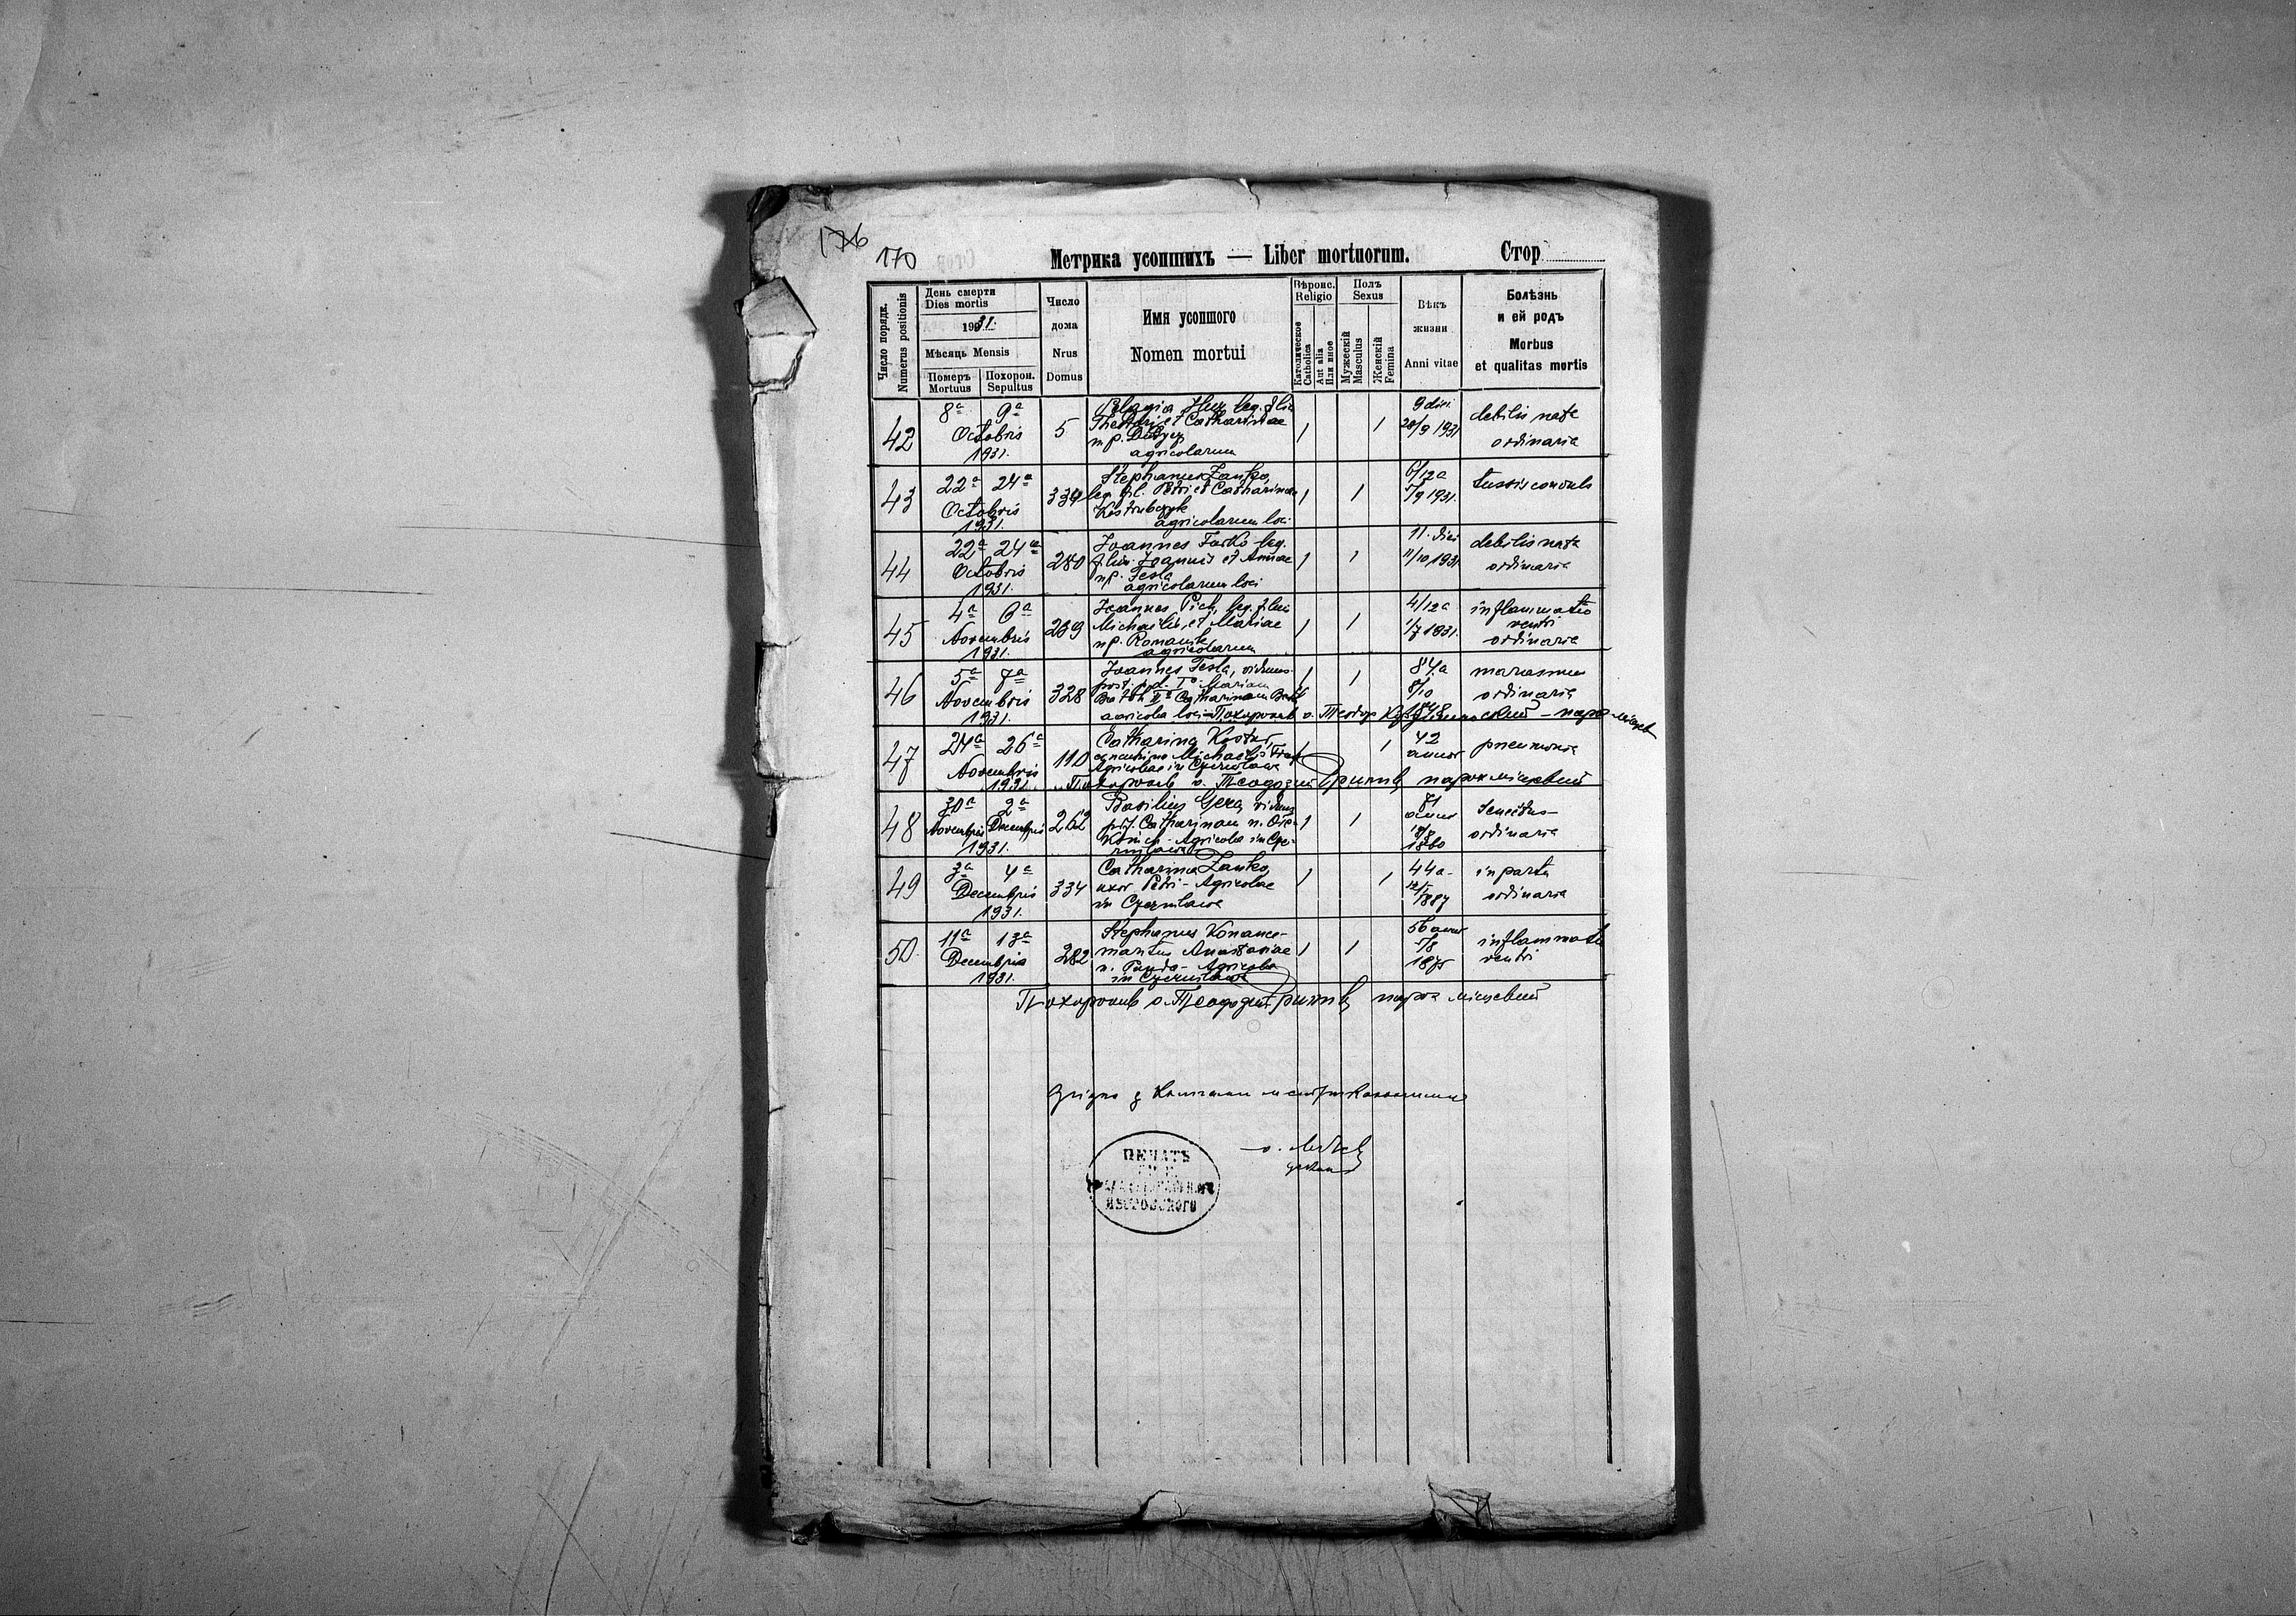 176
170
Метрика усопшихъ — Liber mortuorum.
Стор
Число порядк.
Numerus positionis
День смерти
Dies mortis
1931.
Мѣсяць Mensis
Померъ
Mortuus
Похорон.
Sepultus
Число
дома
Nrus
Domus
Имя усопшого
Nomen mortui
Вѣроис.
Religio
Католическое
Catholica
Aut alia
Или иное
Полъ
Sexus
Мужескій
Masculus
Женскій
Femina
Вѣкъ
жизни
Anni vitae
Болѣзнь
и ей родъ
Morbus
et qualitas mortis
42
8a 9a
Octobris
1931.
5
leg. filia
Theodori et Catharinae
agricolarum
1
1
9 dies
28/9 1931
debilis nata
ordinaria
43
22a 24a
Octobris
1931.
334
Stephanus Zanko,
leg. fil. Petri et Catharinae
agricolarum loci
1
1
6/12 a
1931.
tussis convuls
44
22a 24a
Octobris
1931.
280
Joannes Fosko leg.
filius Joannis et Annae
np. Tesla
agricolarum loci
1
1
11. dies
11/10 1931
debilis nata
ordinaria
45
4a 6a
Novembris
1931.
269
Joannes Pich, leg. filius
Michaëlis et Mariae
np. Romanik
agricolarum
1
1
4/12 a
1/7 1931.
inflammatio
ventri
ordinaria
46
5a 7a
Novembris
1931.
328
Joannes Tesla, viduus
post. Mariam
Catharinam
agricola loci Похоронив о. Теодор
1
1
84. a
8/10
marasmus
ordinaria
47
24a 26a
Novembris
1931.
110
Catharina Kostur,
Michaelis
Agricolae in Czernilawa
1
1
42
annor
pneumonia
Похоронив о. Теодозий Дрипив парох місцевий
48
30a 2a
Novembris Decembris
1931.
262
Basilius Gera, viduus
post Catharinam n.
Agricola in Cze-
rnilawa
1
1
71
annor
1860
Senectus
ordinaria
49
3a 4a
Decembris
1931.
334
Catharina Zanko,
uxor Petri - Agricolae
in Czernilawa
1
1
44 a
1887
in partu
ordinaria
50
11a 13a
Decembris
1931.
282
Stephanus
maritus Anastasiae
n. - Agricola
in Czernilawa
1
1
56 annor
1875
inflammatio
ventri
Похоронив о. Теодозий парох місцевий
ПЕЧАТЬ